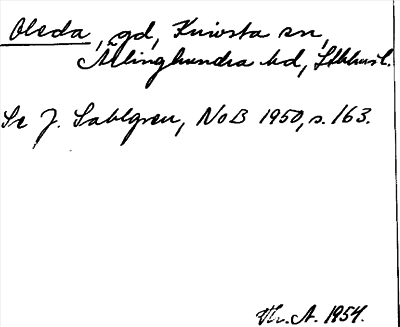 Olsda, gd, Knivsta sn,
Ärlinghundra hd, Sthlmsl.
Se J. Sahlgren, NoB 1950, s. 163.
Vhr. A. 1954.